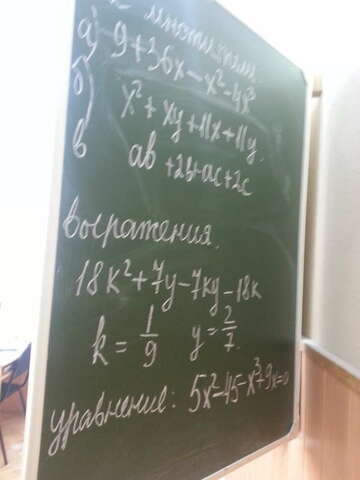 многочлен
а) 9+36x-x²-4x³
б) x²+xy+11x+11y.
в ab+2b+ac+2c
выражения.
18k²+7y-7ky-18k
k = 1/9 y = 2/7
уравнение: 5x²-45-x³+9x=0